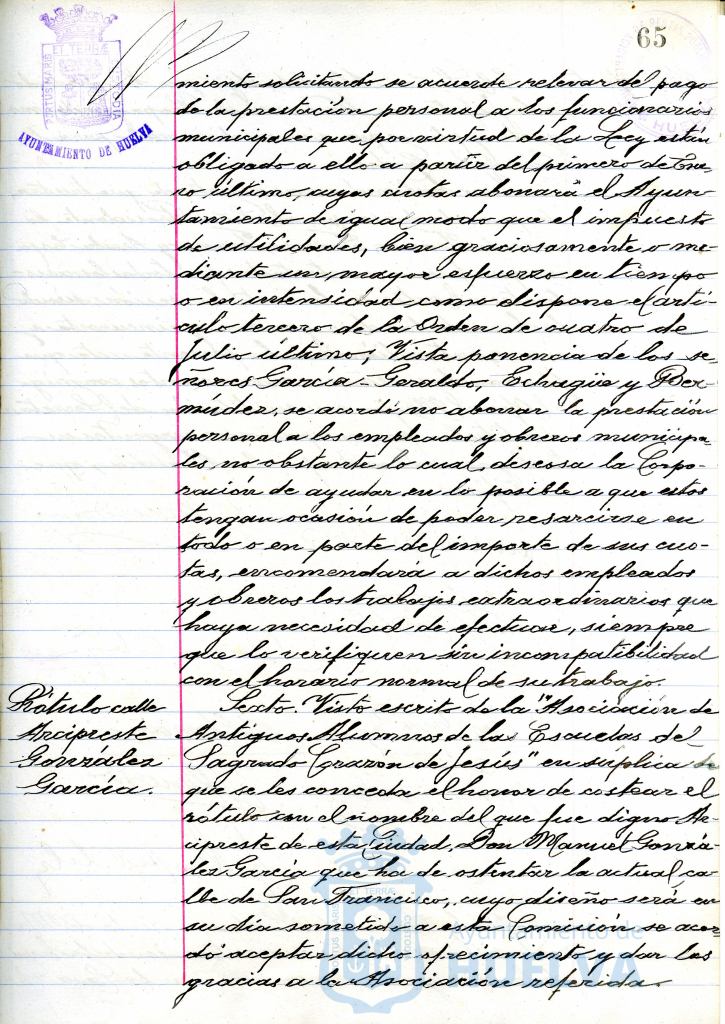 65
AYUNTAMIENTO DE HUELVA
miento solicitando se acuerde relevar del pago
de la prestación personal a los funcionarios
municipales que por virtud de la Ley están
obligado a ello a partir del primero de Ene-
ro último, cuyas cuotas abonará el Ayun-
tamiento de igual modo que el impuesto
de utilidades, bien graciosamente o me-
diante un mayor esfuerzo en tiempo
o en intensidad como dispone el artí-
culo tercero de la Orden de cuatro de
Julio último; Vista ponencia de los se-
ñores García-Geraldo, Echagüe y Ber-
múdez, se acordó no abonar la prestación
personal a los empleados y obreros municipa-
les no obstante lo cual, deseosa la Corpo-
ración de ayudar en lo posible a que estos
tengan ocasión de poder resarcirse en
todo o en parte del importe de sus cuo-
tas, encomendará a dichos empleados
y obreros los trabajos extraordinarios que
haya necesidad de efectuar, siempre
que lo verifiquen sin incompatibilidad
con el horario normal de su trabajo.
Rótulo calle
Arcipreste
González
García.
Sexto. Visto escrito de la "Asociación de
Antiguos Alumnos de las Escuelas del
Sagrado Corazón de Jesús" en súplica de
que se les conceda el honor de costear el
rótulo con el nombre del que fue digno Ar-
cipreste de esta Ciudad, Don Manuel Gonzá-
lez García que ha de ostentar la actual ca-
lle de San Francisco, cuyo diseño será en
su día sometido a esta Comisión se acor-
dó aceptar dicho ofrecimiento y dar las
gracias a la Asociación referida.
Ayuntamiento de
HUELVA